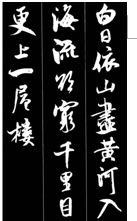 白日依山盡黄河入
海流欲窮千里目
更上一層樓